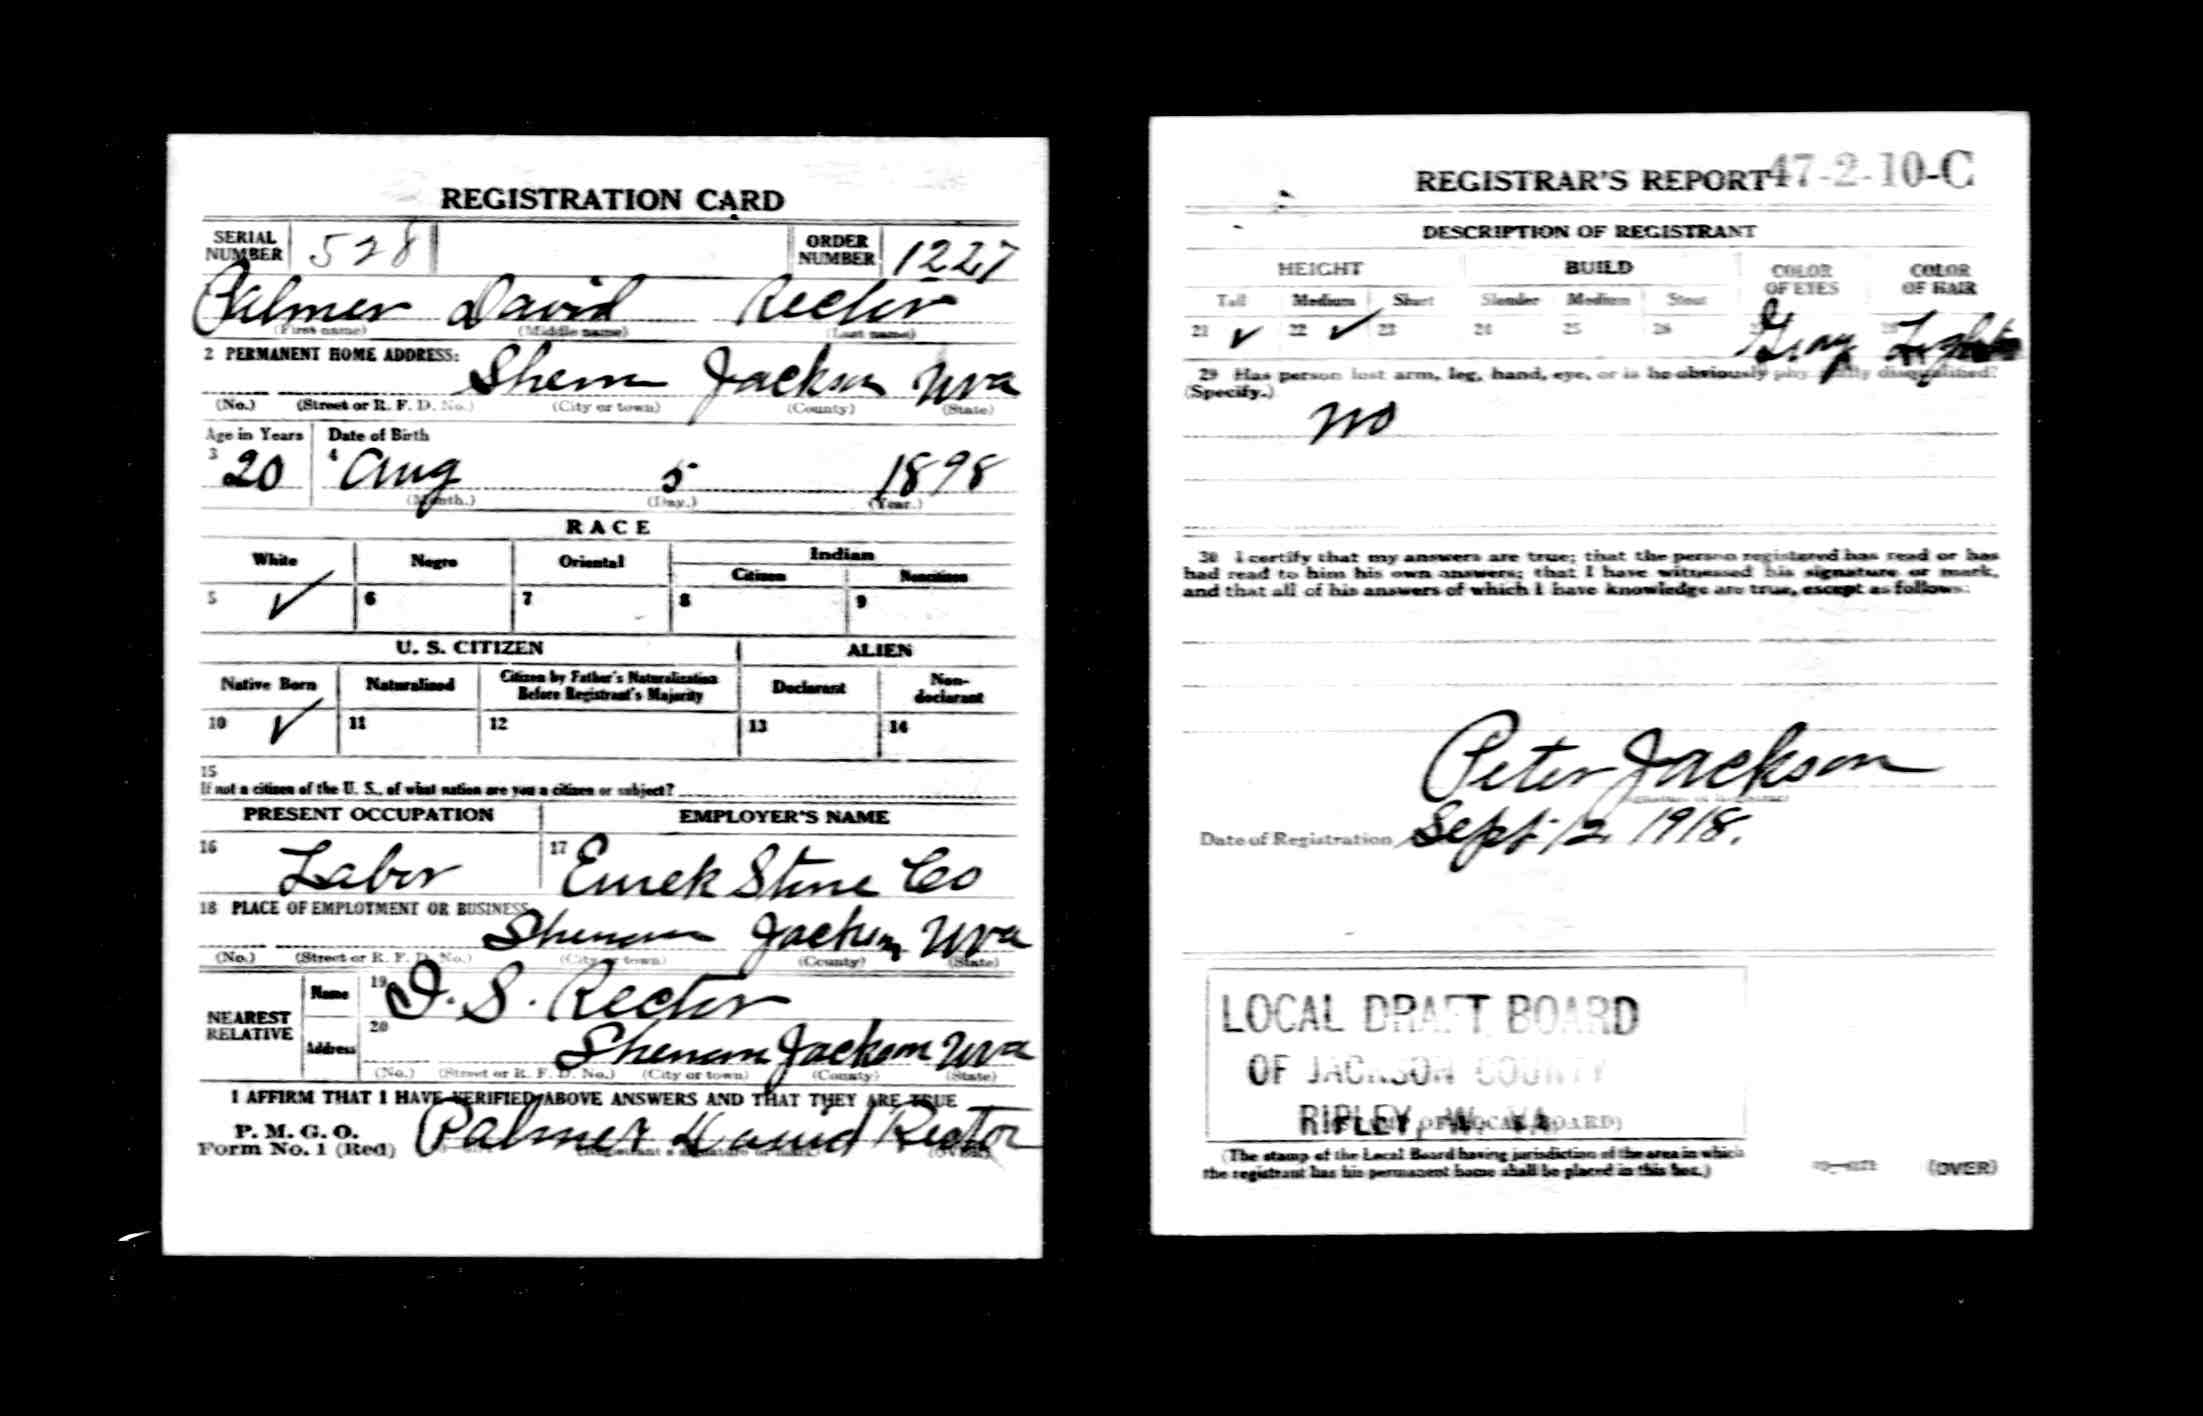 REGISTRATION CARD
SERIAL NUMBER 528 ORDER NUMBER 1227
Palmer David Rector
(First name) (Middle name) (Last name)
2 PERMANENT HOME ADDRESS:
Sherm Jackson Wva
(No.) (Street or R. F. D. No.) (City or town) (County) (State)
Age in Years Date of Birth
3 20 4 Aug 5 1898
(Month.) (Day.) (Year.)
RACE
White Negro Oriental Indian
Citizen Noncitizen
5 ✓ 6 7 8 9
U. S. CITIZEN ALIEN
Native Born Naturalized Citizen by Father's Naturalization Before Registrant's Majority Declarant Non-declarant
10 ✓ 11 12 13 14
15
If not a citizen of the U. S., of what nation are you a citizen or subject?
PRESENT OCCUPATION EMPLOYER'S NAME
16 Labor 17 Eurek Stone Co
18 PLACE OF EMPLOYMENT OR BUSINESS
Jackson Wva
(No.) (Street or R. F. D. No.) (City or town) (County) (State)
NEAREST RELATIVE
Name 19 S. Rector
Address 20 Jackson Wva
(No.) (Street or R. F. D. No.) (City or town) (County) (State)
I AFFIRM THAT I HAVE VERIFIED ABOVE ANSWERS AND THAT THEY ARE TRUE
P. M. G. O.
Form No. 1 (Red) Palmer David Rector
(Registrant's signature or mark) (OVER)
REGISTRAR'S REPORT 47-2-10-C
DESCRIPTION OF REGISTRANT
HEIGHT BUILD COLOR OF EYES COLOR OF HAIR
Tall Medium Short Slender Medium Stout
21 ✓ 22 ✓ 23 24 25 26 27 Gray 28 Light
29 Has person lost arm, leg, hand, eye, or is he obviously physically disqualified?
(Specify.)
no
30 I certify that my answers are true; that the person registered has read or has
had read to him his own answers; that I have witnessed his signature or mark,
and that all of his answers of which I have knowledge are true, except as follows:
Peter Jackson
(Signature of Registrar)
Date of Registration Sept 12, 1918.
LOCAL DRAFT BOARD
OF JACKSON COUNTY
RIPLEY, W. VA.
(STAMP OF LOCAL BOARD)
(The stamp of the Local Board having jurisdiction of the area in which
the registrant has his permanent home shall be placed in this box.)
(OVER)